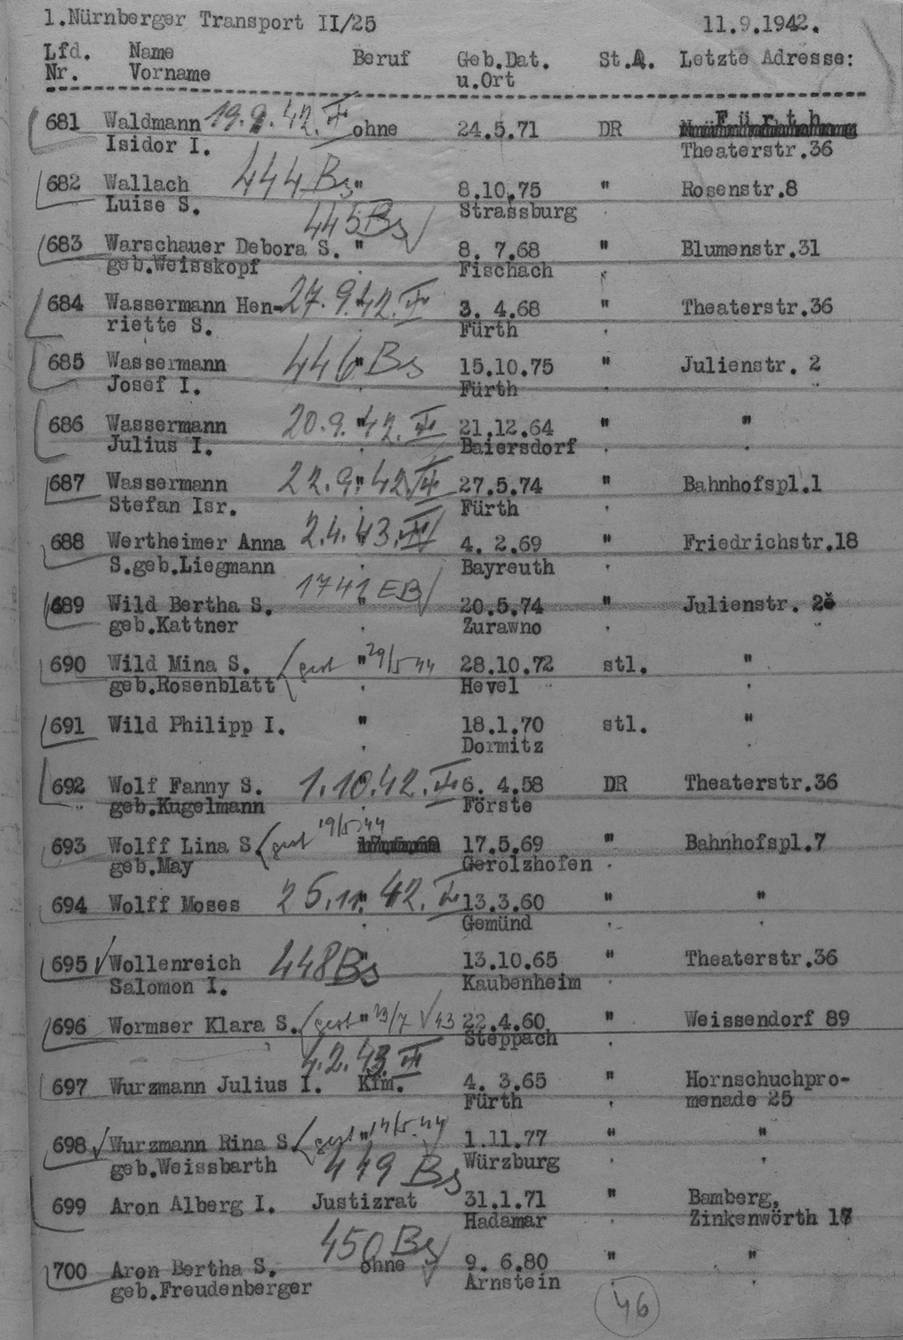 1.Nürnberger Transport II/25 11.9.1942.
Lfd. Name Beruf Geb.Dat. St.A. Letzte Adresse:
Nr. Vorname u.Ort
681 Waldmann 19.9.42. ohne 24.5.71 DR Fürth
Isidor I. Theaterstr.36
682 Wallach 444 Bs " 8.10.75 " Rosenstr.8
Luise S. Strassburg
445 Bs
683 Warschauer Debora S. " 8. 7.68 " Blumenstr.31
geb.Weisskopf Fischach
684 Wassermann Hen- 27.9.42. 3. 4.68 " Theaterstr.36
riette S. Fürth
685 Wassermann 446 Bs " 15.10.75 " Julienstr. 2
Josef I. Fürth
686 Wassermann 20.9.42. " 21.12.64 " "
Julius I. Baiersdorf
687 Wassermann 22.9.42 " 27.5.74 " Bahnhofspl.1
Stefan Isr. Fürth
688 Wertheimer Anna 2.4.43. " 4. 2.69 " Friedrichstr.18
S.geb.Liegmann Bayreuth
1741 EB
689 Wild Bertha S. " 20.5.74 " Julienstr. 2
geb.Kattner Zurawno
690 Wild Mina S. gest " 29/5 44 28.10.72 stl. "
geb.Rosenblatt Hevel
691 Wild Philipp I. " 18.1.70 stl. "
Dormitz
692 Wolf Fanny S. 1.10.42. " 6. 4.58 DR Theaterstr.36
geb.Kugelmann Förste
693 Wolff Lina S. gest 19/5 44 17.5.69 " Bahnhofspl.7
geb.May Gerolzhofen
694 Wolff Moses 25.11.42. " 13.3.60 " "
Gemünd
695 Wollenreich 448 Bs " 13.10.65 " Theaterstr.36
Salomon I. Kaubenheim
696 Wormser Klara S. gest " 29/7 43 22.4.60 " Weissendorf 89
Steppach
4.2.43.
697 Wurzmann Julius I. Kfm. 4. 3.65 " Hornschuchpro-
Fürth menade 25
698 Wurzmann Rina S. gest " 14/5.44 1.11.77 " "
geb.Weissbarth 449 Bs Würzburg
699 Aron Alberg I. Justizrat 31.1.71 " Bamberg,
Hadamar Zinkenwörth 17
450 Bs
700 Aron Bertha S. ohne 9. 6.80 " "
geb.Freudenberger Arnstein
46